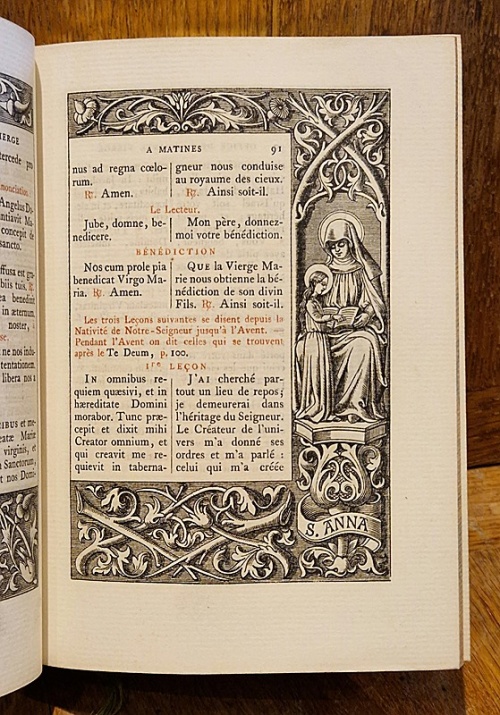 IERGE
ntercede pro
nonciation.
Angelus Do-
ntiavit Ma-
concepit de
sancto.
ffusa est gra-
biis tuis. ℟.
ea benedixit
in æternum.
noster,
se,
ne nos indu-
tentationem.
libera nos a
IBUS et me-
eatæ Mariæ
virginis, et
Sanctorum,
at nos Domi-
A MATINES 91
nus ad regna cœlo-
rum.
℟. Amen.
gneur nous conduise
au royaume des cieux.
℟. Ainsi soit-il.
Le Lecteur.
Jube, domne, be-
nedicere.
Mon père, donnez-
moi votre bénédiction.
BÉNÉDICTION
Nos cum prole pia
benedicat Virgo Ma-
ria. ℟. Amen.
QUE la Vierge Ma-
rie nous obtienne la bé-
nédiction de son divin
Fils. ℟. Ainsi soit-il.
Les trois Leçons suivantes se disent depuis la
Nativité de Notre-Seigneur jusqu'à l'Avent. —
Pendant l'Avent on dit celles qui se trouvent
après le Te Deum, p. 100.
Ire LEÇON
IN omnibus re-
quiem quæsivi, et in
hæreditate Domini
morabor. Tunc præ-
cepit et dixit mihi
Creator omnium, et
qui creavit me re-
quievit in taberna-
J'AI cherché par-
tout un lieu de repos;
je demeurerai dans
l'héritage du Seigneur.
Le Créateur de l'uni-
vers m'a donné ses
ordres et m'a parlé :
celui qui m'a créée
S. ANNA